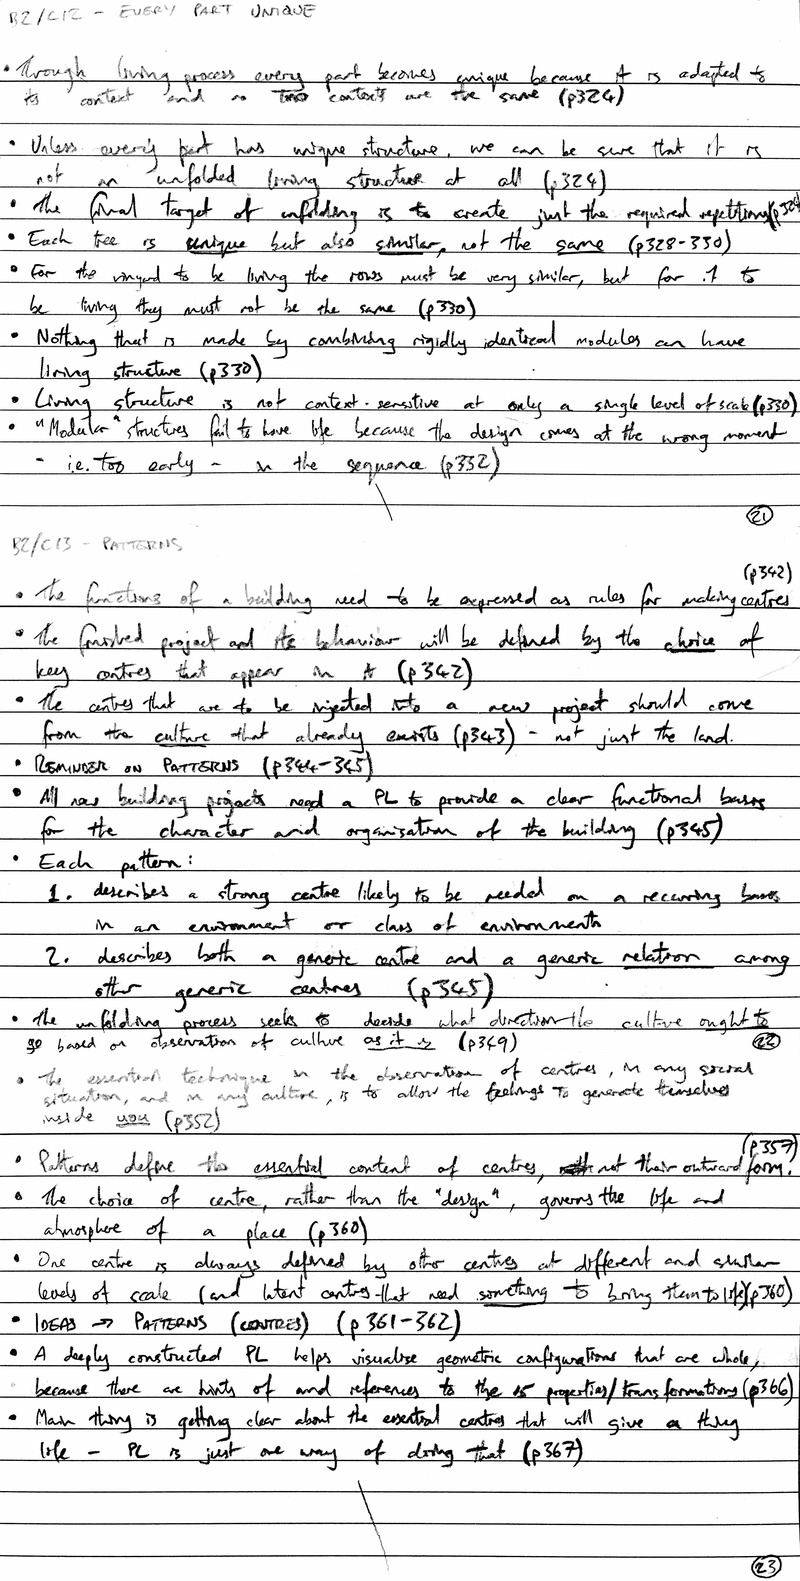 B2/C12 - EVERY PART UNIQUE
• Through living process every part becomes unique because it is adapted to
its context and no two contexts are the same (p324)
• Unless every part has unique structure, we can be sure that it is
not an unfolded living structure at all (p324)
• The final target of unfolding is to create just the required repetitions
• Each tree is unique but also similar, not the same (p328-330)
• For the vineyard to be living the rows must be very similar, but for it to
be living they must not be the same (p330)
• Nothing that is made by combining rigidly identical modules can have
living structure (p330)
• Living structure is not context-sensitive at only a single level of scale (p330)
• "Modular" structures fail to have life because the design comes at the wrong moment
- i.e. too early - in the sequence (p332)
21
B2/C13 - PATTERNS
(p342)
• The functions of a building need to be expressed as rules for making centres
• The finished project and its behaviour will be defined by the choice of
key centres that appear in it (p342)
• The centres that are to be injected into a new project should come
from the culture that already exists (p343) - not just the land.
• REMINDER ON PATTERNS (p344-345)
• All new building projects need a PL to provide a clear functional basis
for the character and organisation of the building (p345)
• Each pattern:
1. describes a strong centre likely to be needed on a recurring basis
in an environment or class of environments
2. describes both a generic centre and a generic relation among
other generic centres (p345)
• The unfolding process seeks to decide what direction the culture ought to
go based on observation of culture as it is (p349)
22
• The essential technique in the observation of centres, in any social
situation, and in any culture, is to allow the feelings to generate themselves
inside you (p352)
(p357)
• Patterns define the essential content of centres, not their outward form.
• The choice of centre, rather than the "design", governs the life and
atmosphere of a place (p360)
• One centre is always defined by other centres at different and similar
levels of scale (and latent centres that need something to bring them to life) (p360)
• IDEAS → PATTERNS (CENTRES) (p361-362)
• A deeply constructed PL helps visualise geometric configurations that are whole,
because there are hints of and references to the 15 properties/transformations (p366)
• Main thing is getting clear about the essential centres that will give a thing
life - PL is just one way of doing that (p367)
23